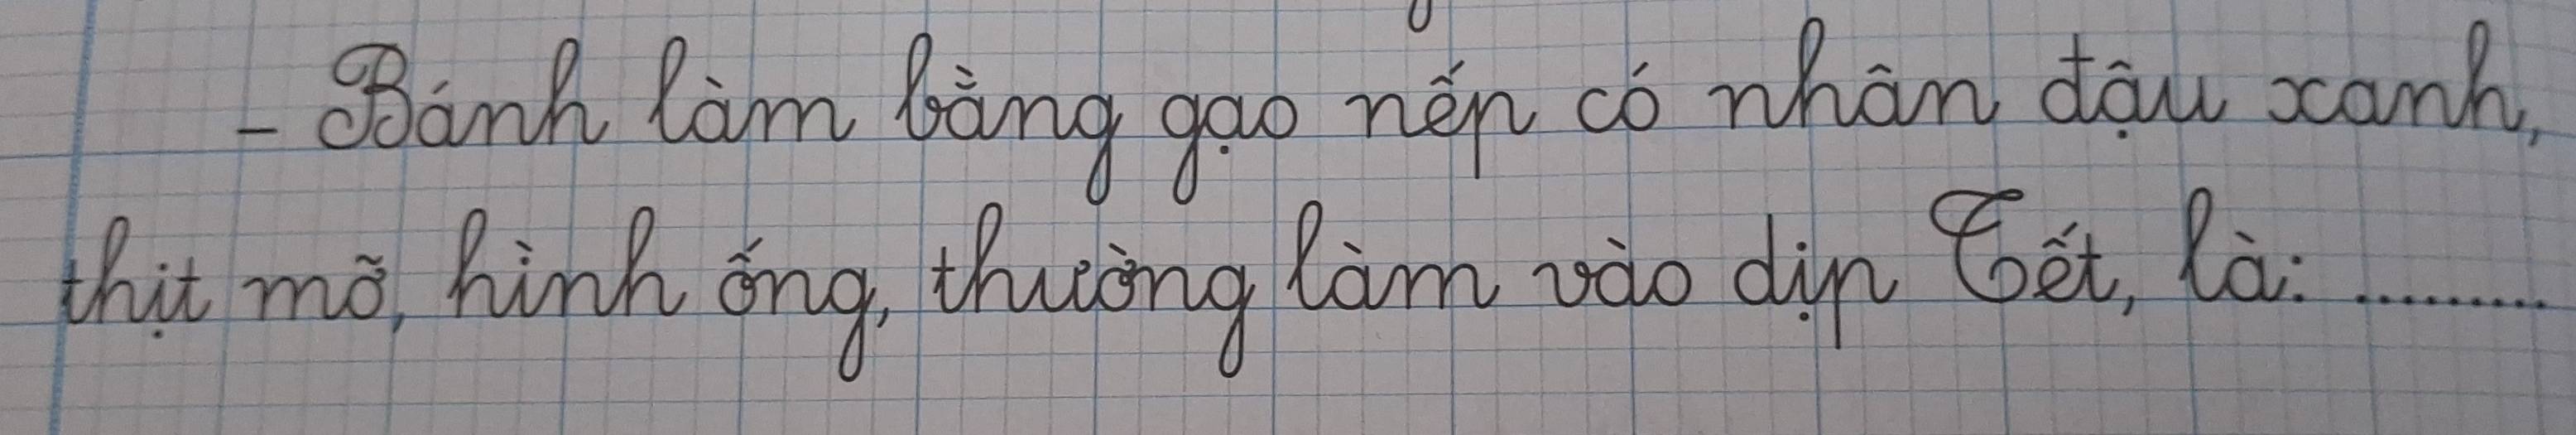 - Bánh làm bằng gạo nếp có nhân đậu xanh,
thịt mỡ, hình ống, thường làm vào dịp Tết, là: ..........